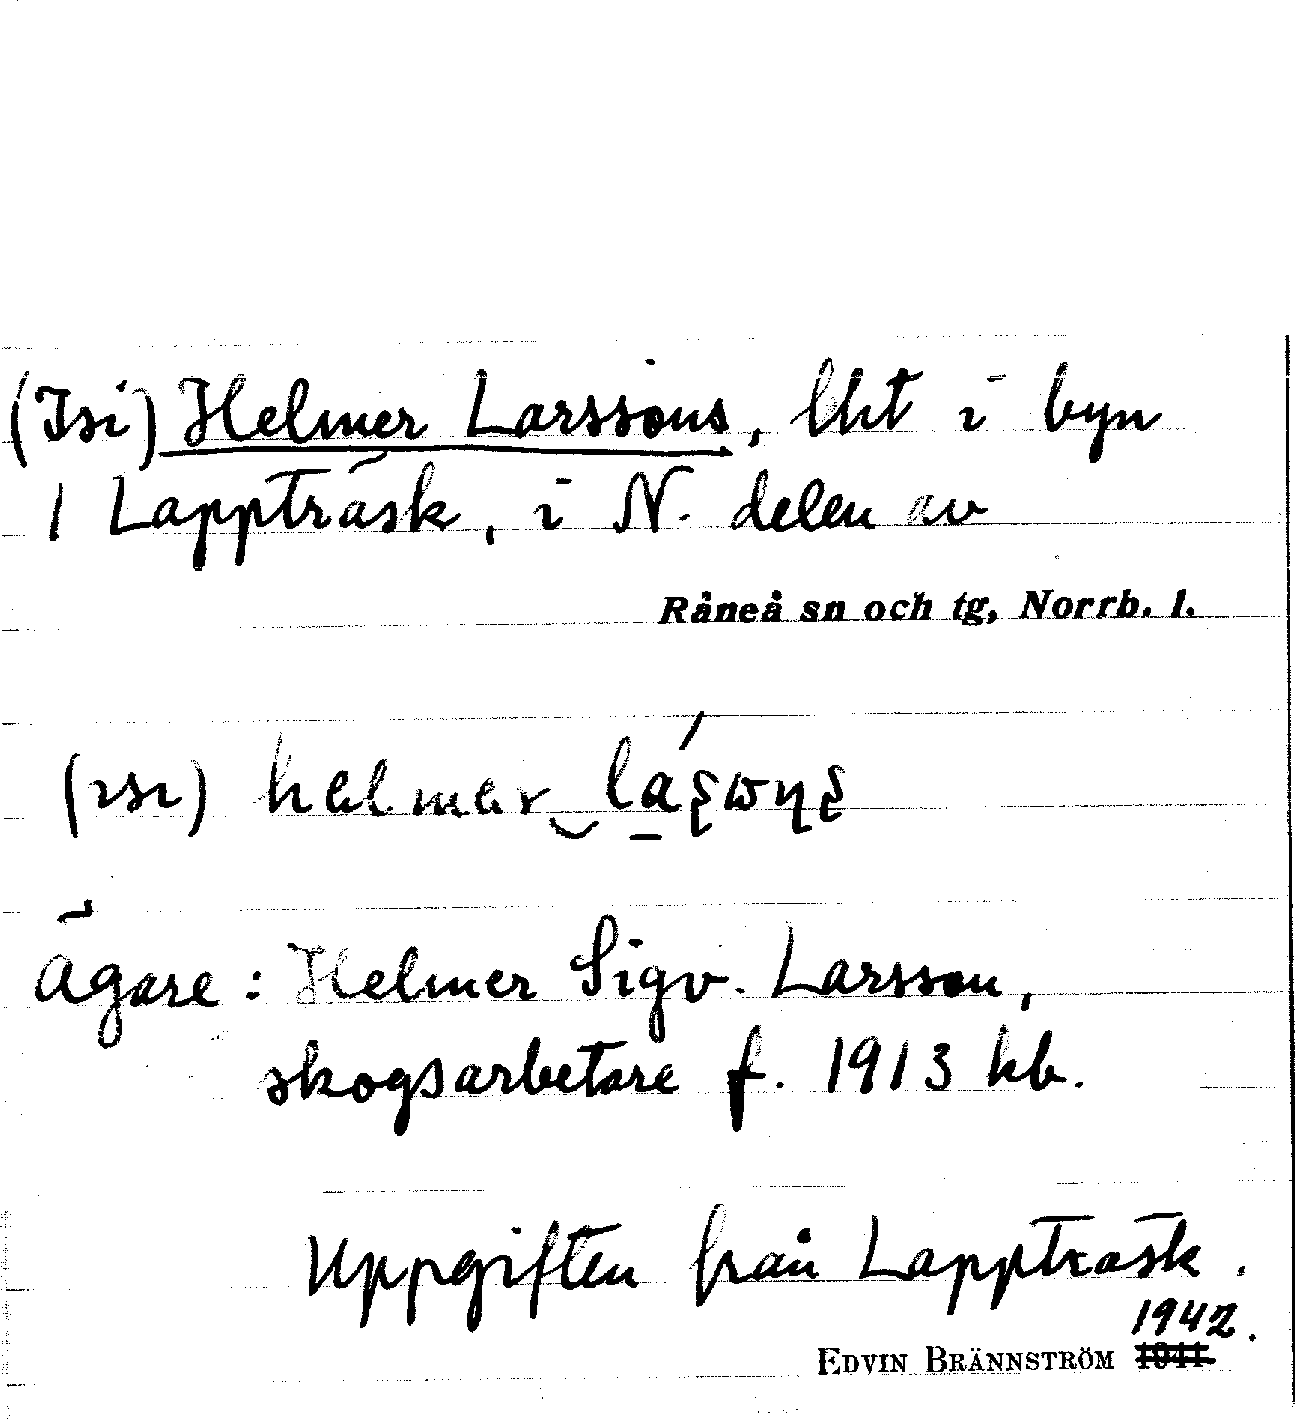 (Isi) Helmer Larssons, lht i byn
1 Lappträsk, i N. delen av
Råneå sn och tg, Norrb. l.
(ısı) hælmær
Ägare: Helmer Sigv. Larsson,
skogsarbetare f. 1913 kb.
Uppgiften från Lappträsk.
1942.
EDVIN BRÄNNSTRÖM 1941